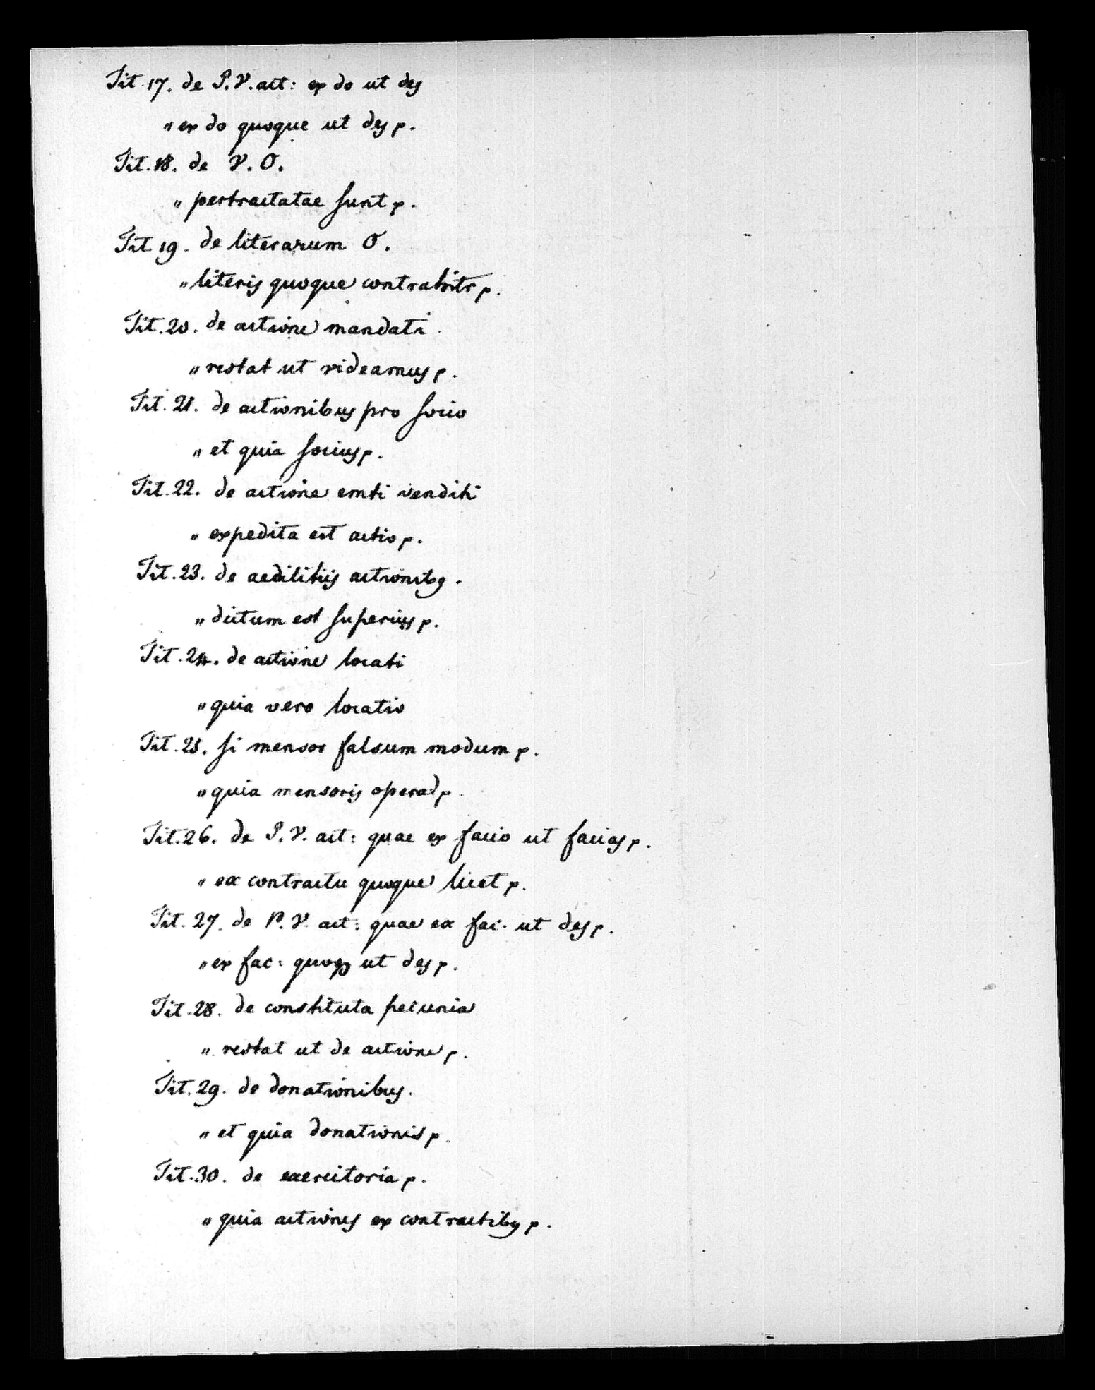 Tit. 17. de P. V. act: ex do ut des
" ex do quoque ut des p.
Tit. 18. de V. O.
" pertractatae sunt p.
Tit 19. de literarum O.
" literis quoque contrahitr p.
Tit. 20. de actione mandati.
" restat ut videamus p.
Tit. 21. de actionibus pro socio
" et quia socius p.
Tit. 22. de actione emti venditi
" expedita est actio p.
Tit. 23. de aedilitiis actionibq.
" dictum est superius p.
Tit. 24. de actione locati
" quia vero locatio
Tit. 25. si mensor falsum modum p.
" quia mensoris opera p.
Tit. 26. de P. V. act: quae ex facio ut facias p.
" ex contractu quoque licet p.
Tit. 27. de P. V. act: quae ex fac. ut des p.
" ex fac: quoq ut des p.
Tit. 28. de constituta pecunia
" restat ut de actione p.
Tit. 29. de donationibus.
" et quia donationis p.
Tit. 30. de exercitoria p.
" quia actiones ex contractibq p.